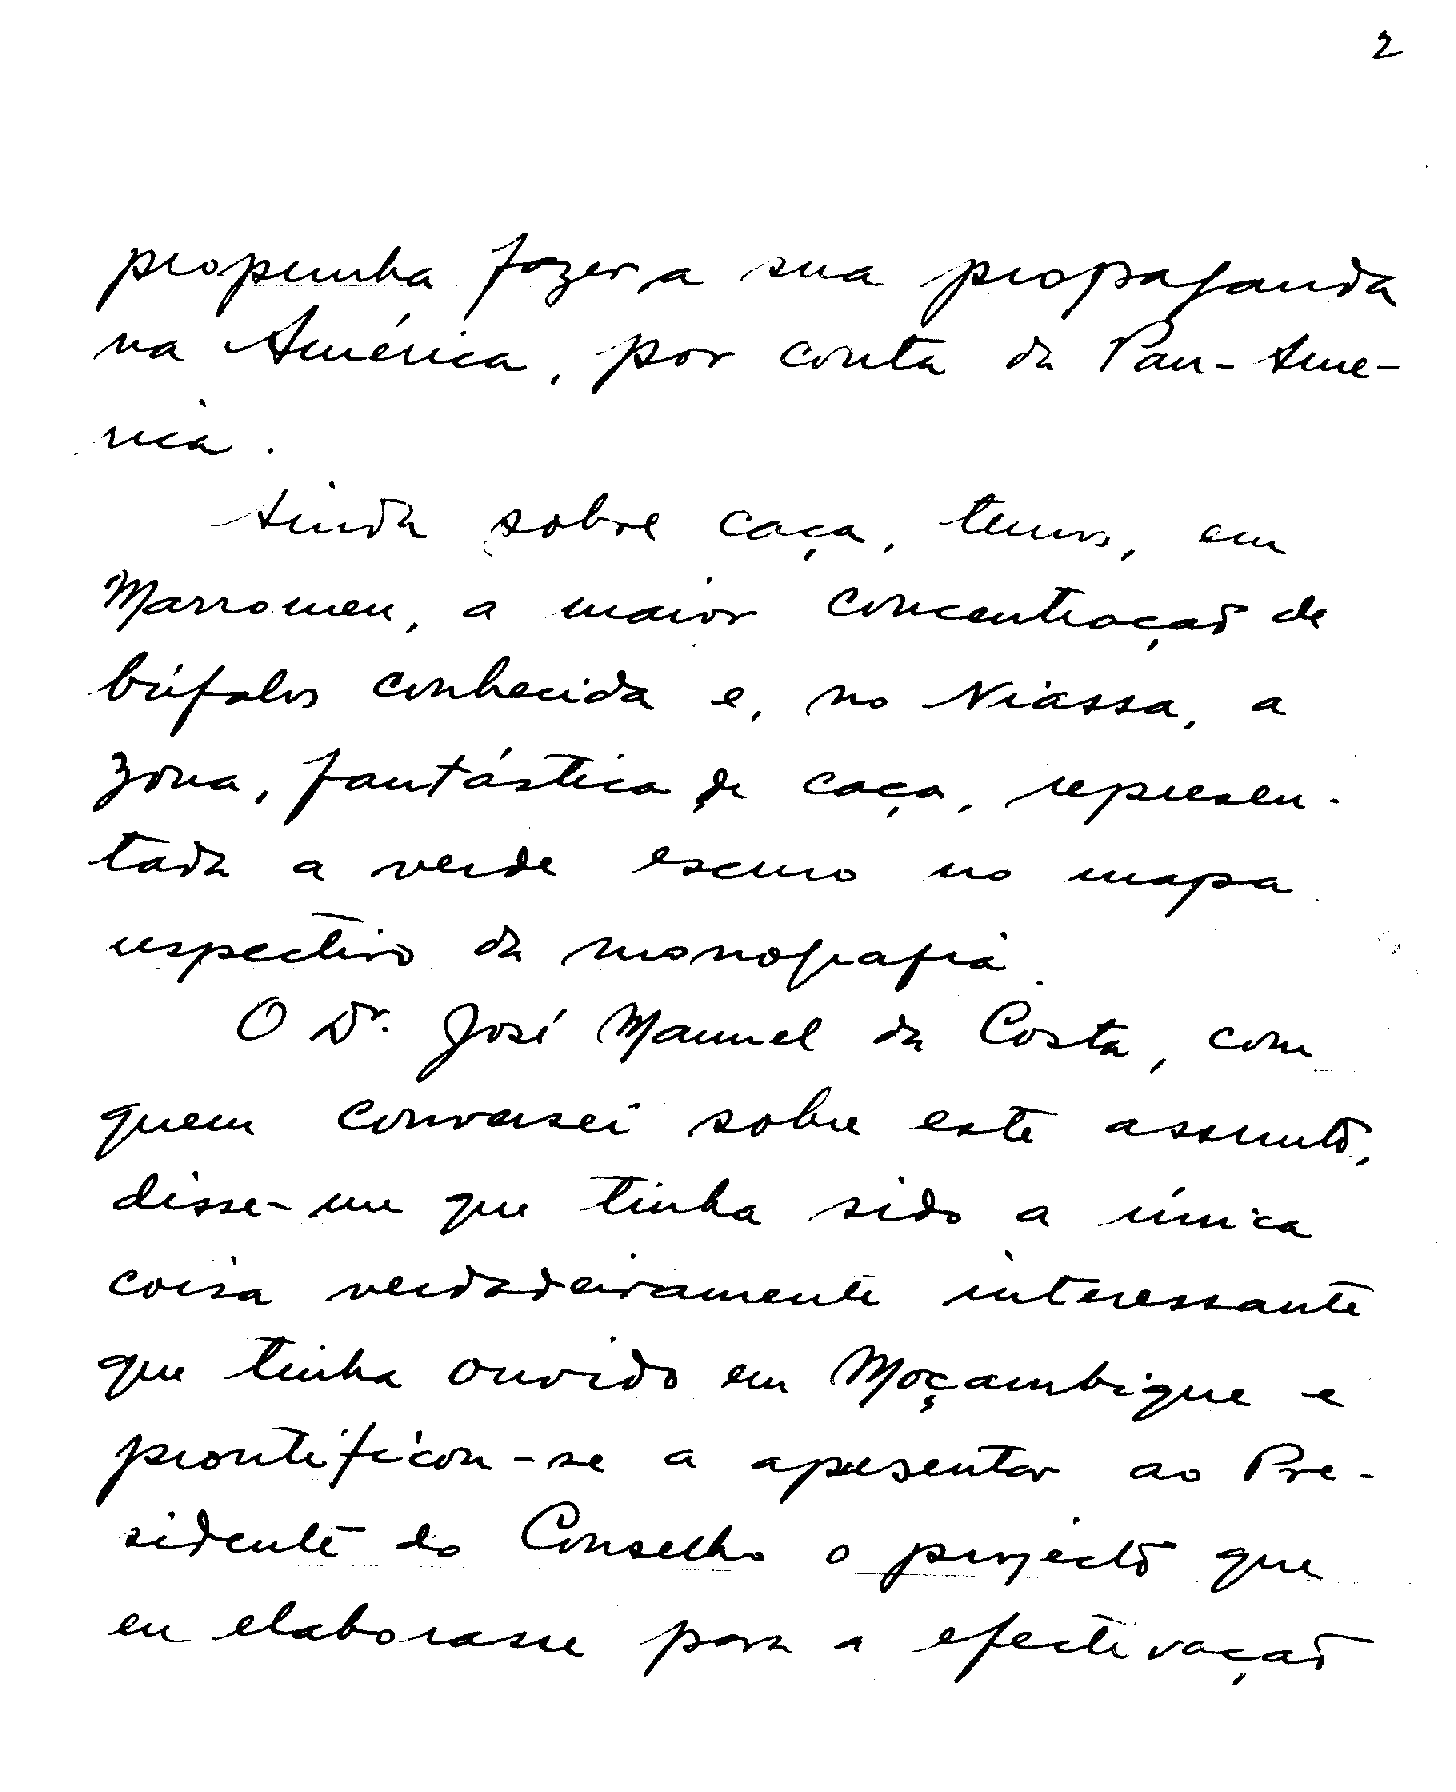 2
propunha fazer a sua propaganda
na América, por conta da Pan-Ame-
rica.
Ainda sobre caça, temos, em
Marromeu, a maior concentração de
búfalos conhecida e, no Niassa, a
zona, fantástica de caça, represen-
tada a verde escuro no mapa
respectivo da monografia.
O Dr. José Manuel da Costa, com
quem conversei sobre este assunto,
disse-me que tinha sido a única
coisa verdadeiramente interessante
que tinha ouvido em Moçambique e
prontificou-se a apresentar ao Pre-
sidente do Conselho o projecto que
eu elaborasse para a efectivação